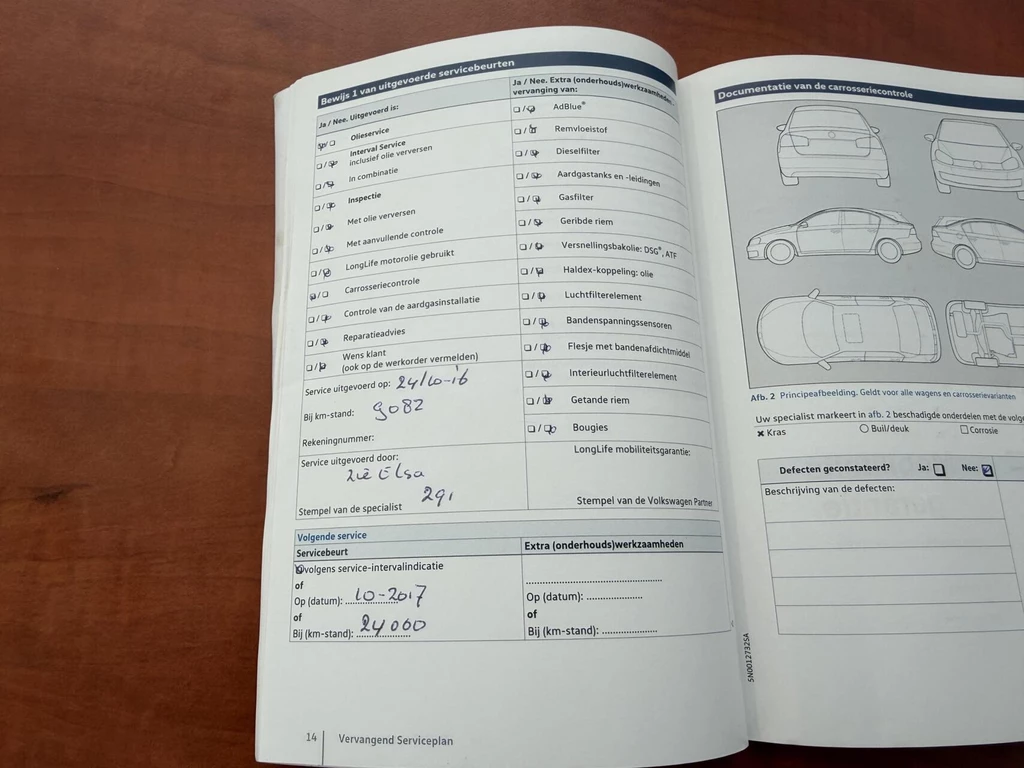 Bewijs 1 van uitgevoerde servicebeurten
Ja / Nee. Uitgevoerd is:
Olieservice
Interval Service
inclusief olie verversen
In combinatie
Inspectie
Met olie verversen
Met aanvullende controle
LongLife motorolie gebruikt
Carrosseriecontrole
Controle van de aardgasinstallatie
Reparatieadvies
Wens klant
(ook op de werkorder vermelden)
Service uitgevoerd op: 24/10-16
Bij km-stand: 9082
Rekeningnummer:
Service uitgevoerd door:
Zie Elsa
291
Stempel van de specialist
Ja / Nee. Extra (onderhouds)werkzaamheden,
vervanging van:
AdBlue®
Remvloeistof
Dieselfilter
Aardgastanks en -leidingen
Gasfilter
Geribde riem
Versnellingsbakolie: DSG®, ATF
Haldex-koppeling: olie
Luchtfilterelement
Bandenspanningssensoren
Flesje met bandenafdichtmiddel
Interieurluchtfilterelement
Getande riem
Bougies
LongLife mobiliteitsgarantie:
Stempel van de Volkswagen Partner
Volgende service
Servicebeurt
volgens service-intervalindicatie
of
Op (datum): 10-2017
of
Bij (km-stand): 24000
Extra (onderhouds)werkzaamheden
Op (datum):
of
Bij (km-stand):
14
Vervangend Serviceplan
Documentatie van de carrosseriecontrole
Afb. 2 Principeafbeelding. Geldt voor alle wagens en carrosserievarianten
Uw specialist markeert in afb. 2 beschadigde onderdelen met de volge
Kras
Buil/deuk
Corrosie
Defecten geconstateerd? Ja: Nee:
Beschrijving van de defecten:
5N0012732SA